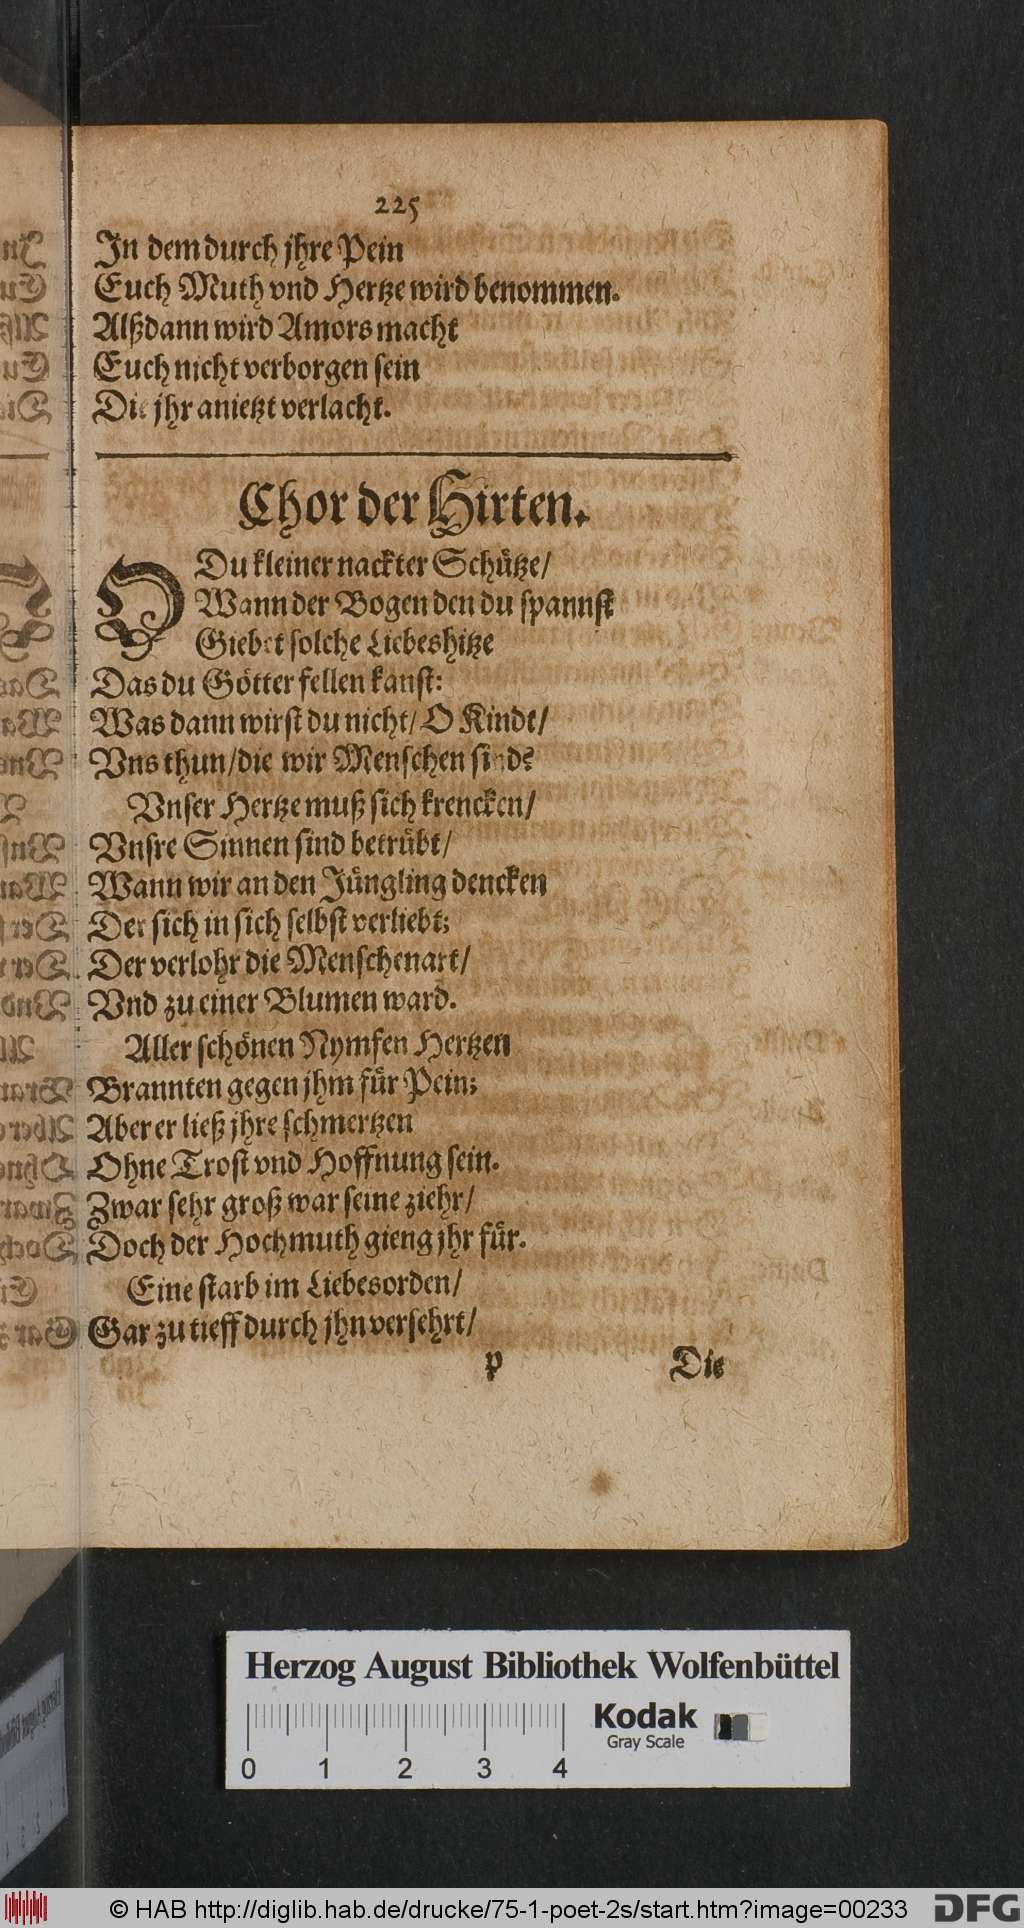 225
In dem durch jhre Pein
Euch Muth vnd Hertze wird benommen.
Alßdann wird Amors macht
Euch nicht verborgen sein
Die jhr anietzt verlacht.
Chor der Hirten.
O Du kleiner nackter Schütze/
Wann der Bogen den du spannst
Giebet solche Liebeshitze
Das du Götter fellen kanst:
Was dann wirst du nicht/ O Kindt/
Vns thun/die wir Menschen sind?
Vnser Hertze muß sich krencken/
Vnsre Sinnen sind betrübt/
Wann wir an den Jüngling dencken
Der sich in sich selbst verliebt;
Der verlohr die Menschenart/
Vnd zu einer Blumen ward.
Aller schönen Nymfen Hertzen
Brannten gegen jhm für Pein;
Aber er ließ jhre schmertzen
Ohne Trost vnd Hoffnung sein.
Zwar sehr groß war seine ziehr/
Doch der Hochmuth gieng jhr für.
Eine starb im Liebesorden/
Gar zu tieff durch jhn versehrt/
P Die
Herzog August Bibliothek Wolfenbüttel
Kodak
Gray Scale
0 1 2 3 4
© HAB http://diglib.hab.de/drucke/75-1-poet-2s/start.htm?image=00233
DFG